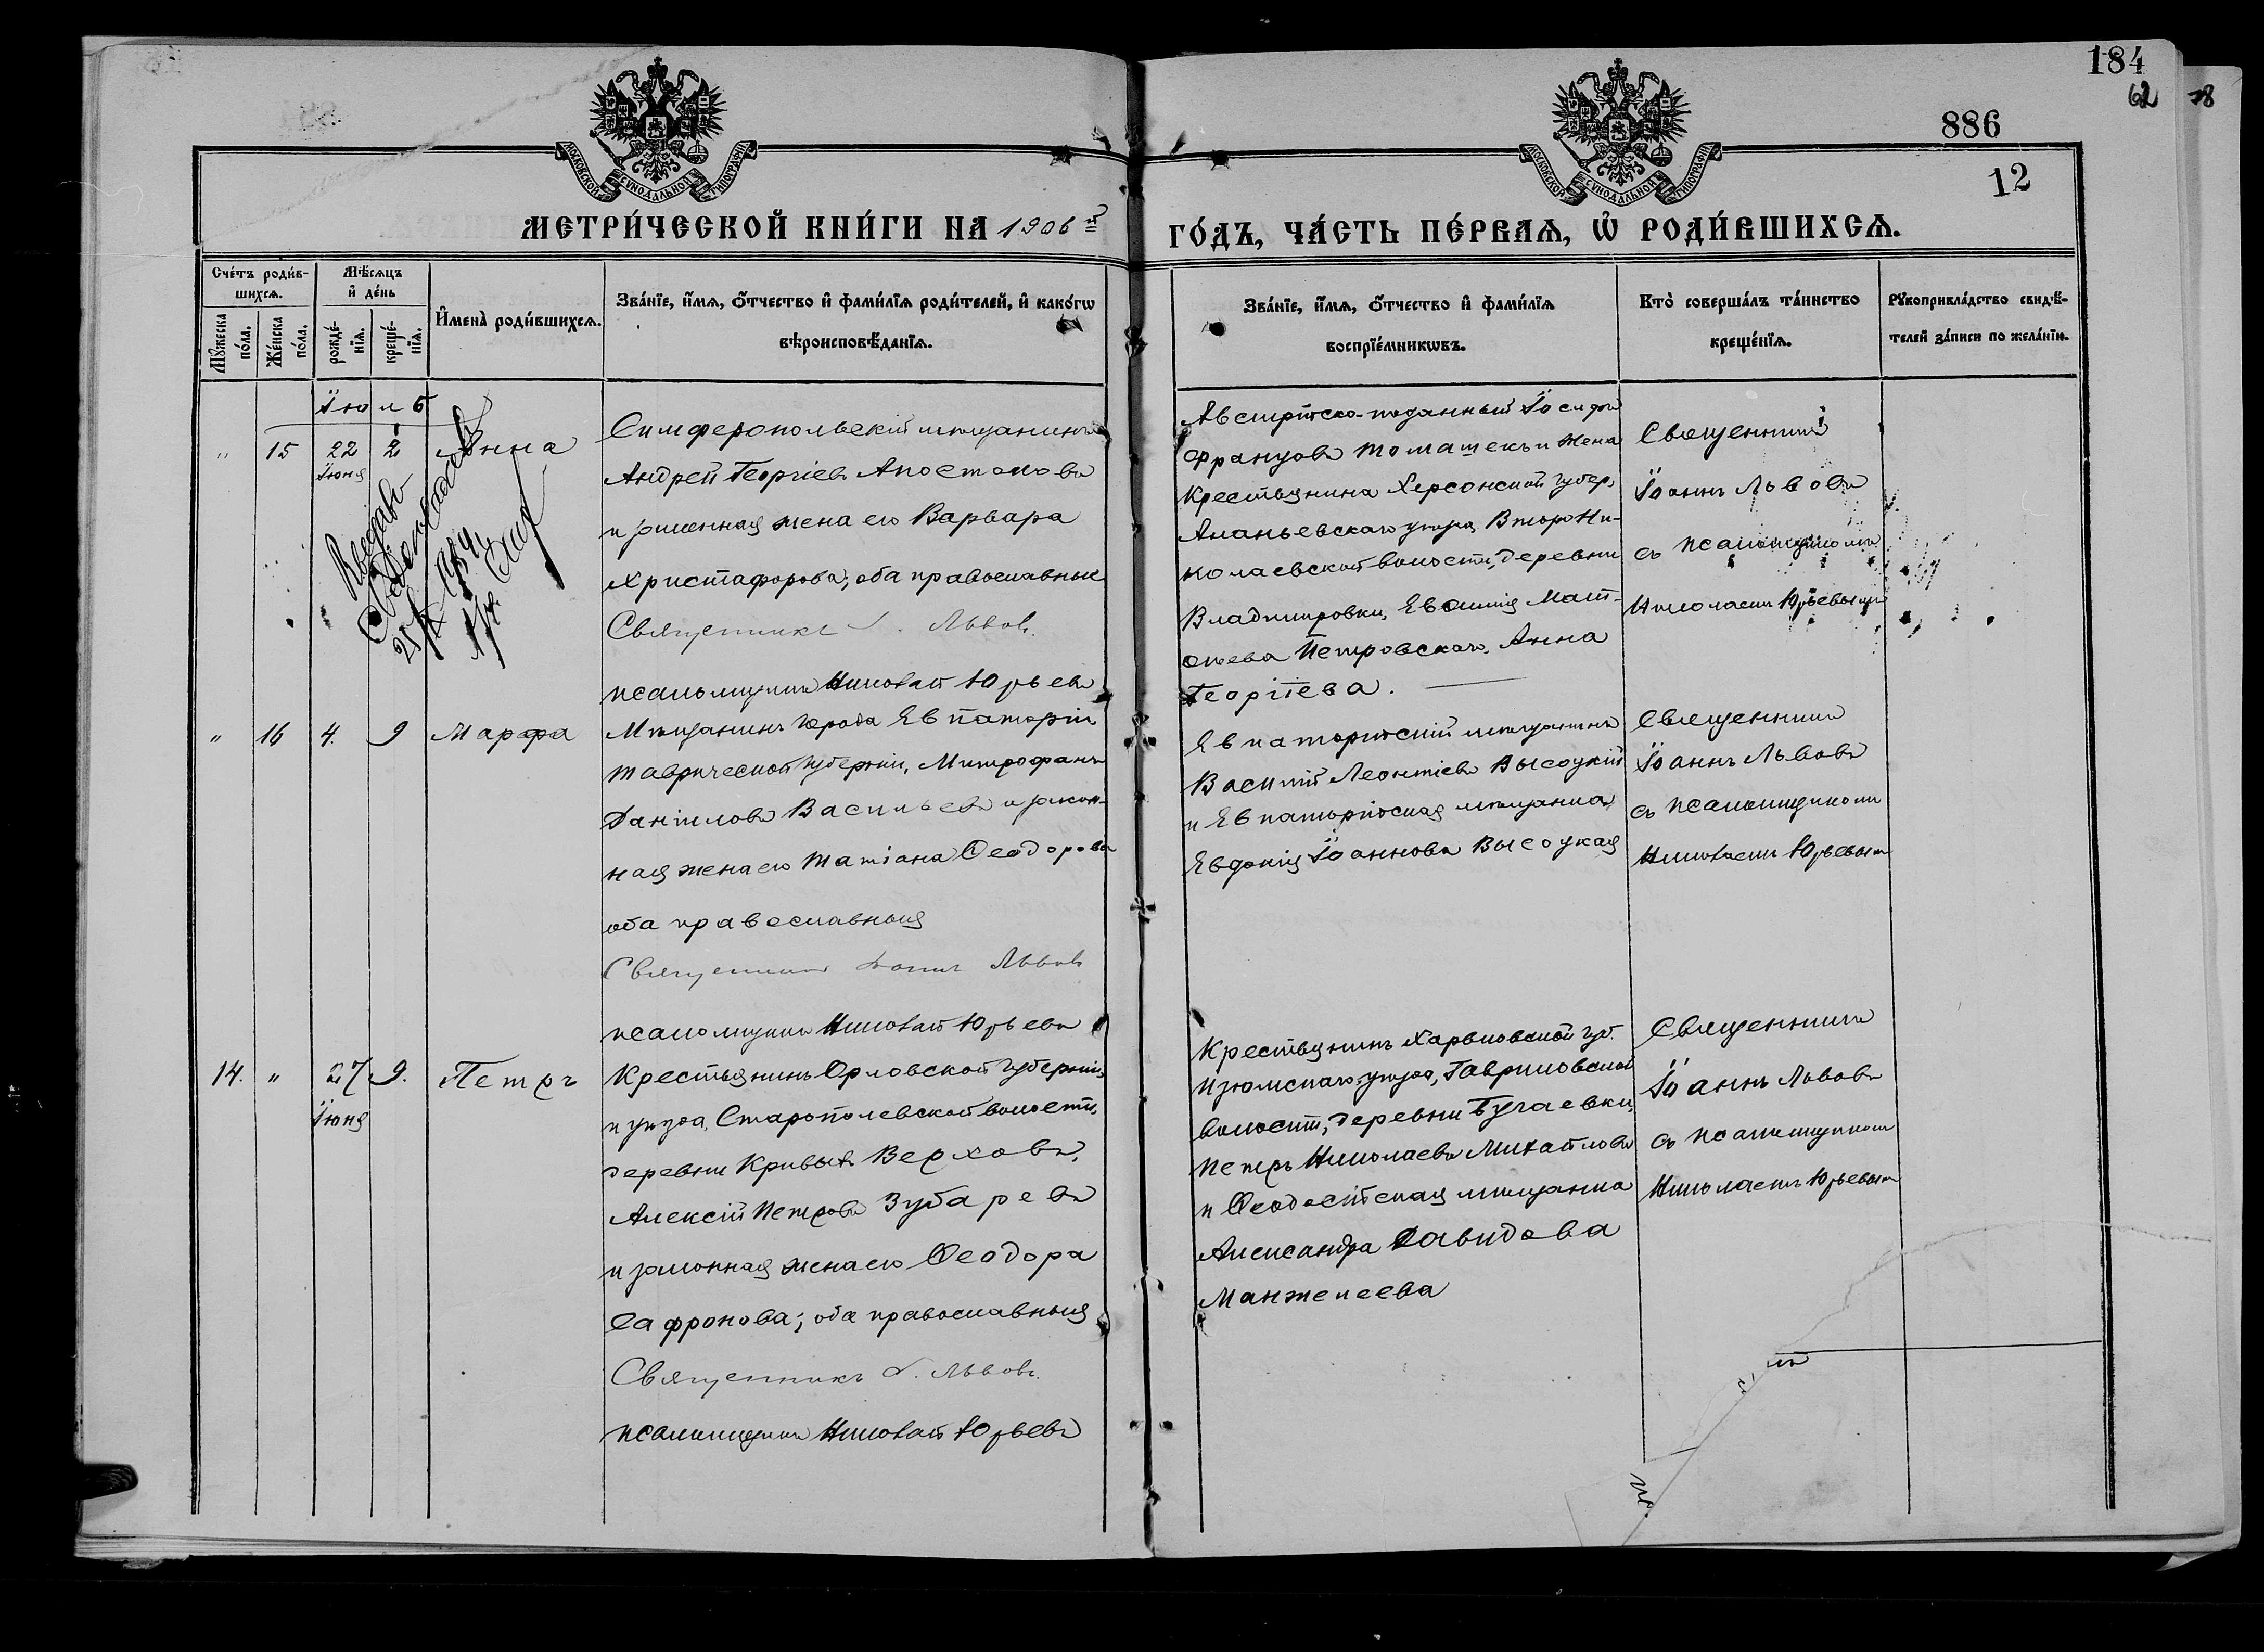 184
62
78
886
12
МОСКОВСКОЙ СѴНОДАЛЬНОЙ ТИПОГРАФІИ
МОСКОВСКОЙ СѴНОДАЛЬНОЙ ТИПОГРАФІИ
МЕТРИ́ЧЕСКОЙ КНИ́ГИ НА 1906й
ГО́ДЪ, ЧА́СТЬ ПЕ́РВАѦ, Ѡ҆ РОДИ́ВШИХСѦ.
Сче́тъ роди́в-
шихсѧ.
Мꙋ́жеска по́ла.
Же́нска по́ла.
Мѣ́сѧцъ
и҆ де́нь
рожде́-
нїѧ.
креще́-
нїѧ.
И҆мена̀ роди́вшихсѧ.
Зва́нїе, и҆́мѧ, ѻ҆́тчество и҆ фами́лїѧ роди́телей, и҆ како́гѡ
вѣроисповѣ́данїѧ.
Зва́нїе, и҆́мѧ, ѻ҆́тчество и҆ фами́лїѧ
воспрїе́мникѡвъ.
Кто̀ соверша́лъ та́инство
креще́нїѧ.
Рꙋкоприкла́дство свидѣ́-
телей за́писи по жела́нїю.
Іюль
" 15 22 2 Анна
Іюня
Симферопольскій мѣщанинъ
Андрей Георгіевъ Апостоловъ
и законная жена его Варвара
Христафорова; оба православные
Священникъ І. Львов.
псаломщикъ Николай Юрьевъ
Австрійско-подданный Іосифъ
Францовъ Томашекъ и жена
крестьянина Херсонской губер,
Ананьевскаго уѣзда, Второ Ни-
колаевской волости, деревни
Владимировки, Евфимія Мат-
ѳеева Петровскаго, Анна
Георгіева.
Священникъ
Іоаннъ Львовъ
съ псаломщикомъ
Николаемъ Юрьевымъ
" 16 4. 9 Марфа
Мѣщанинъ города Евпаторіи
Таврической губерніи, Митрофанъ
Даніиловъ Васильевъ и закон-
ная жена его Татіана Ѳеодорова
оба православныя
Священникъ Іоаннъ Львовъ
псаломщикъ Николай Юрьевъ
Евпаторійскій мѣщанинъ
Василій Леонтіевъ Высоцкій
и Евпаторійская мѣщанка
Евдокія Іоаннова Высоцкая
Священникъ
Іоаннъ Львовъ
съ псаломщикомъ
Николаемъ Юрьевымъ
14. " 27 9. Петръ
Іюня
Крестьянинъ Орловской губерніи
и уѣзда, Старополевской волости,
деревни Кривыхъ Верховъ,
Алексій Петровъ Зубаревъ
и законная жена его Ѳеодора
Сафронова; оба православныя
Священникъ І. Львовъ.
псаломщикъ Николай Юрьевъ
Крестьянинъ Харьковской губ.
Изюмскаго уѣзда, Гавриловской
волости, деревни Бугаевки,
Петръ Николаевъ Михайловъ
и Ѳеодосійская мѣщанка
Александра Давидова
Манжелеева
Священникъ
Іоаннъ Львовъ
съ псаломщикомъ
Николаемъ Юрьевымъ